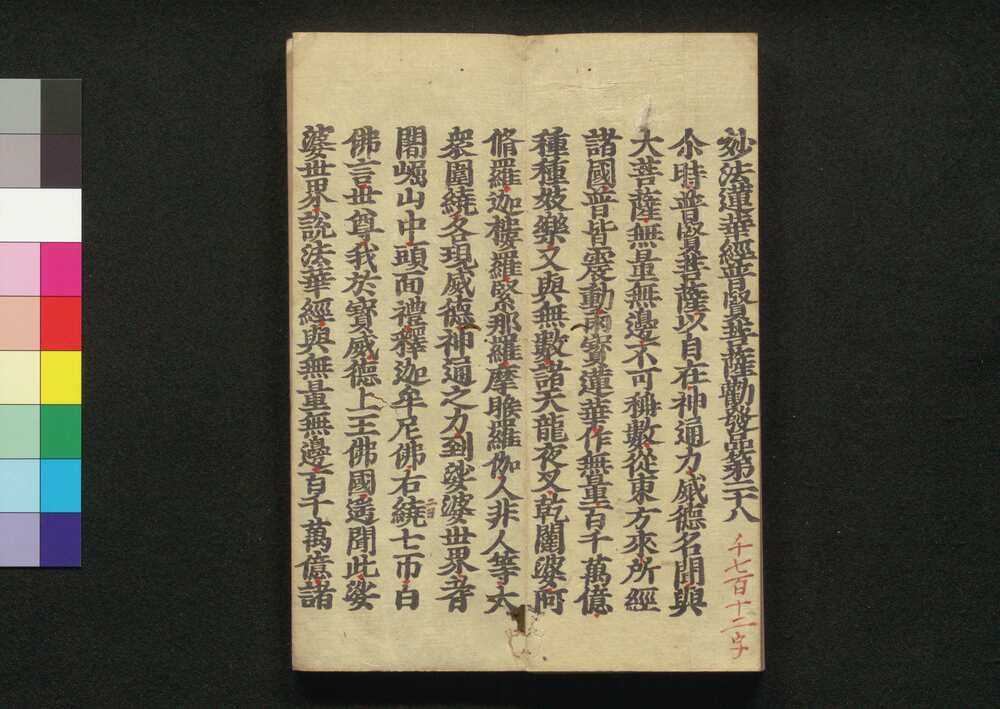 妙法蓮華經普賢菩薩勸發品第二十八
千七百十二字
尒時普賢菩薩以自在神通力威德名聞與
大菩薩無量無邊不可稱數從東方來所經
諸國普皆震動雨寳蓮華作無量百千萬億
種種妓樂又與無數諸天龍夜叉乾闥婆阿
脩羅迦樓羅緊那羅摩睺羅伽人非人等大
衆圍繞各現威德神通之力到娑婆世界耆
闍崛山中頭面禮釋迦牟尼佛右繞七帀白
佛言世尊我於寳威德上王佛國遥聞此娑
婆世界說法華經與無量無邊百千萬億諸